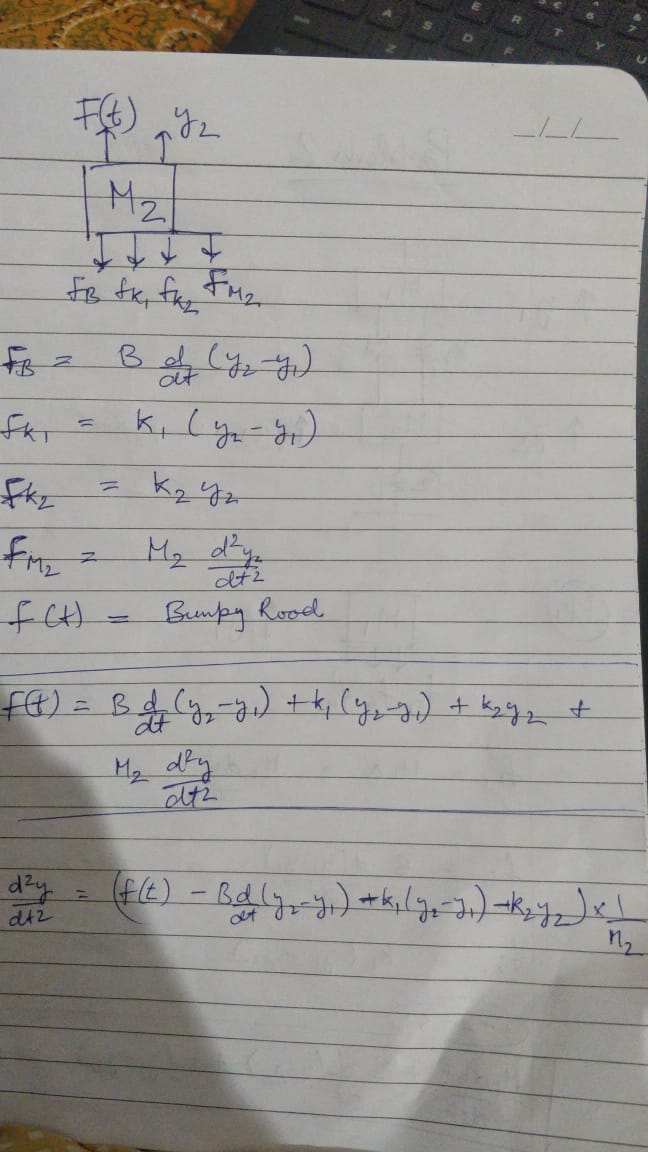 F(t) y₂
_/_/__
M₂
f_B f_K₁ f_K₂ F_M₂
f_B = B d/dt (y₂-y₁)
f_K₁ = K₁ (y₂-y₁)
f_K₂ = K₂ y₂
F_M₂ = M₂ d²y₂/dt2
f(t) = Bumpy Road
F(t) = B d/dt (y₂-y₁) + k₁ (y₂-y₁) + k₂y₂ +
M₂ d²y/dt2
d²y/dt2 = (f(t) - B d/dt (y₂-y₁) - k₁(y₂-y₁) - k₂y₂) × 1/M₂